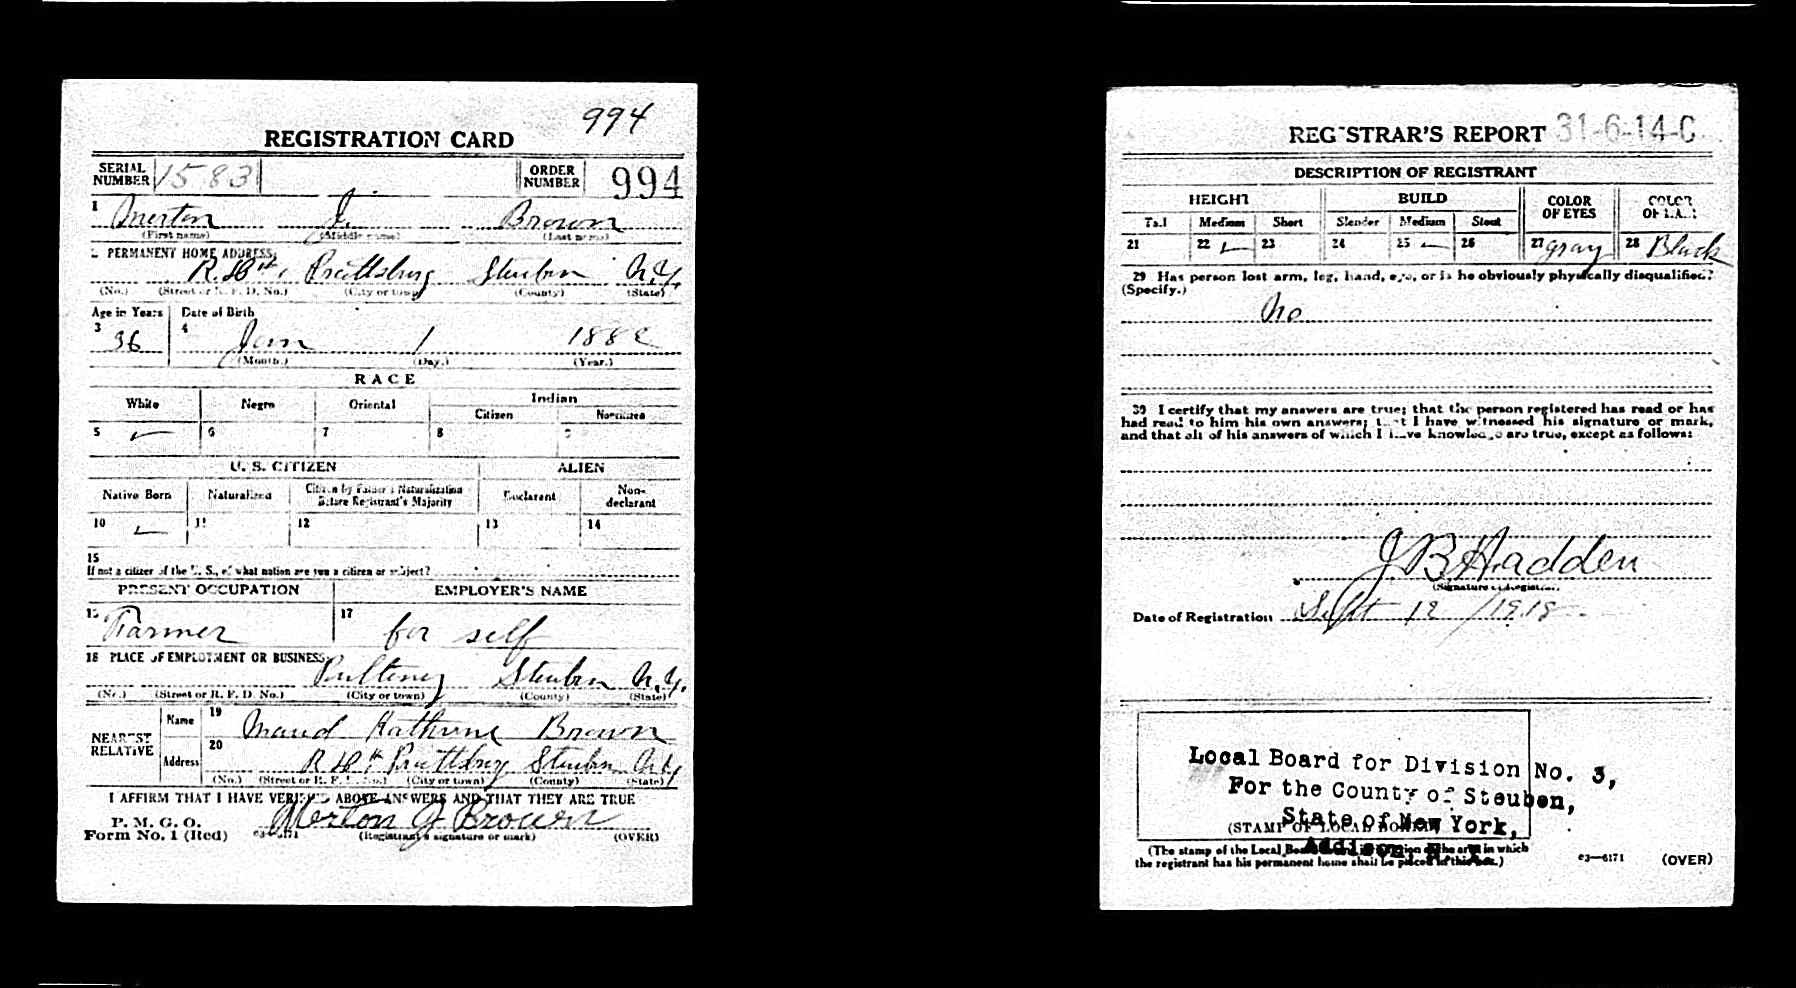 994
REGISTRATION CARD
SERIAL NUMBER 1583 ORDER NUMBER 994
1 Merton J. Brown
(First name) (Middle name) (Last name)
2 PERMANENT HOME ADDRESS:
Prattsburg Steuben N.Y.
(No.) (Street or R. F. D. No.) (City or town) (County) (State)
Age in Years Date of Birth
3 36 4 Jan 1 1882
(Month.) (Day.) (Year.)
RACE
White Negro Oriental Indian
Citizen Noncitizen
5 ✓ 6 7 8 9
U. S. CITIZEN ALIEN
Native Born Naturalized Citizen by Father's Naturalization Before Registrant's Majority Declarant Non-declarant
10 ✓ 11 12 13 14
15
If not a citizen of the U. S., of what nation are you a citizen or subject?
PRESENT OCCUPATION EMPLOYER'S NAME
16 Farmer 17 for self
18 PLACE OF EMPLOYMENT OR BUSINESS:
Pulteney Steuben N.Y.
(No.) (Street or R. F. D. No.) (City or town) (County) (State)
NEAREST RELATIVE Name 19 Maud Kathrine Brown
Address 20 Prattsburg Steuben N.Y.
(No.) (Street or R. F. D. No.) (City or town) (County) (State)
I AFFIRM THAT I HAVE VERIFIED ABOVE ANSWERS AND THAT THEY ARE TRUE
P. M. G. O.
Form No. 1 (Red) 03-6171 Merton J Brown
(Registrant's signature or mark) (OVER)
REGISTRAR'S REPORT 31-6-14-C
DESCRIPTION OF REGISTRANT
HEIGHT BUILD COLOR OF EYES COLOR OF HAIR
Tall Medium Short Slender Medium Stout
21 22 ✓ 23 24 25 ✓ 26 27 gray 28 Black
29 Has person lost arm, leg, hand, eye, or is he obviously physically disqualified?
(Specify.)
No
30 I certify that my answers are true; that the person registered has read or has
had read to him his own answers; that I have witnessed his signature or mark,
and that all of his answers of which I have knowledge are true, except as follows:
J B Hadden
(Signature of Registrar)
Date of Registration Sept 12 / 1918
Local Board for Division No. 3,
For the County of Steuben,
State of New York,
(STAMP OF LOCAL BOARD)
Addison, N. Y.
(The stamp of the Local Board having jurisdiction of the area in which
the registrant has his permanent home shall be placed in this box.)
03—6171 (OVER)